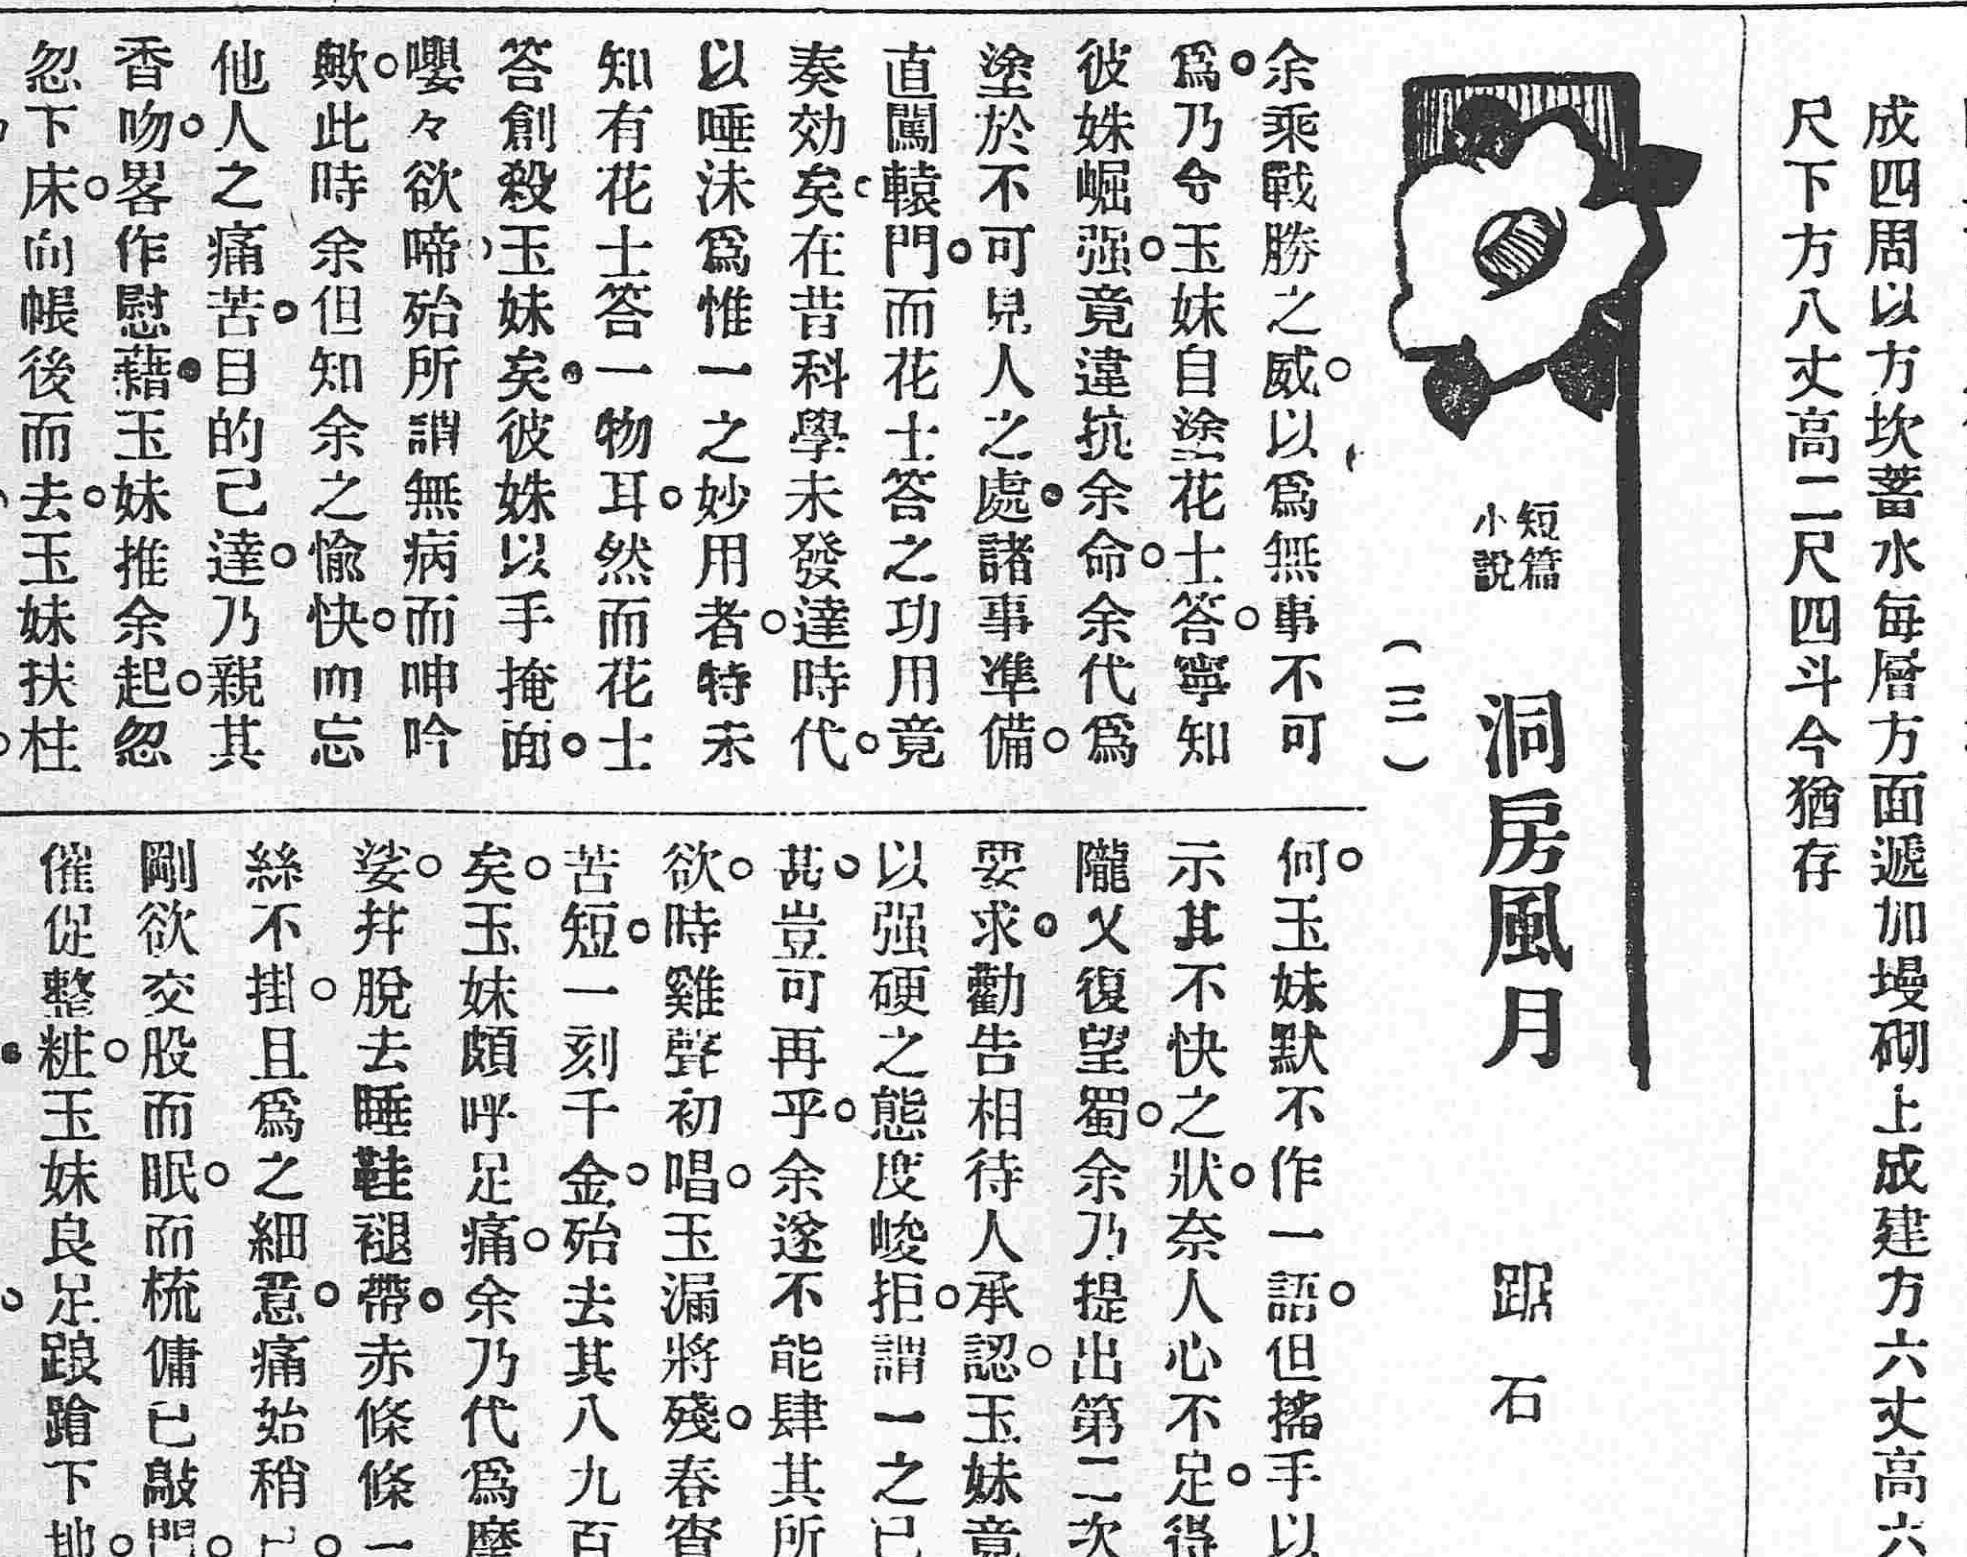 成四周以方坎蓄水每層方面遞加墁砌上成建方六丈高六
尺下方八丈高二尺四斗今猶存
短篇
小說
洞房風月
踞石
（三）
余乘戰勝之威。以爲無事不可
爲。乃令玉妹自塗花士答。寧知
彼姝崛强。竟違抗余命。余代爲
塗於不可見人之處。諸事準備。
直闖轅門。而花士答之功用竟
奏効矣。在昔科學未發達時代。
以唾沫爲惟一之妙用者。特未
知有花士答一物耳。然而花士
答創殺玉妹矣。彼姝以手掩面。
嚶々欲啼。殆所謂無病而呻吟
歟。此時余但知余之愉快。而忘
他人之痛苦。目的己達。乃親其
香吻。畧作慰藉。玉妹推余起。忽
忽下床。向帳後而去。玉妹扶柱
何。玉妹默不作一語。但搖手以
示其不快之狀。奈人心不足。得
隴又復望蜀。余乃提出第二次
要求。勸告相待人承認。玉妹竟
以强硬之態度峻拒。謂一之已
甚。豈可再乎。余遂不能肆其所
欲。時雞聲初唱。玉漏將殘。春宵
苦短。一刻千金。殆去其八九百
矣。玉妹頗呼足痛。余乃代爲摩
娑。幷脫去睡鞋褪帶。赤條條一
絲不掛。且爲之細意。痛始稍
剛欲交股而眠。而梳傭已敲門。
催促整粧。玉妹良足踉蹌下